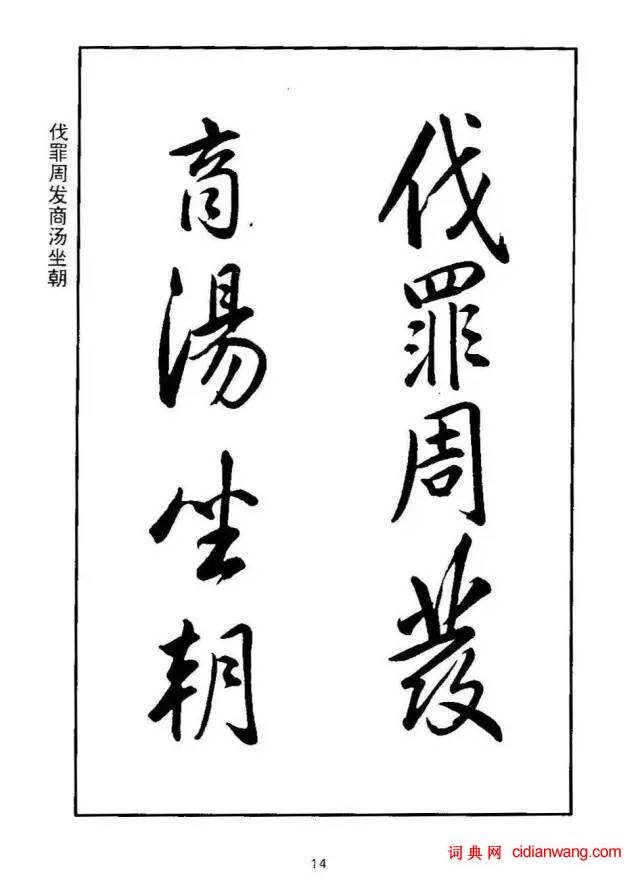 伐罪周發
商湯坐朝
伐罪周发商汤坐朝
14
词典网 cidianwang.com